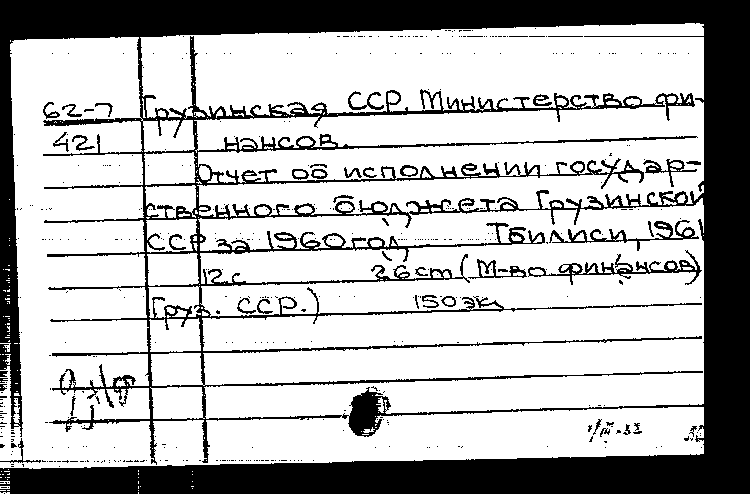 62-7 Грузинская ССР. Министерство фи-
421 нансов.
Отчет об исполнении государ-
ственного бюджета Грузинской
ССР за 1960 год Тбилиси, 1961
12 с 26 cm (М-во финансов
Груз. ССР.) 150 эк.